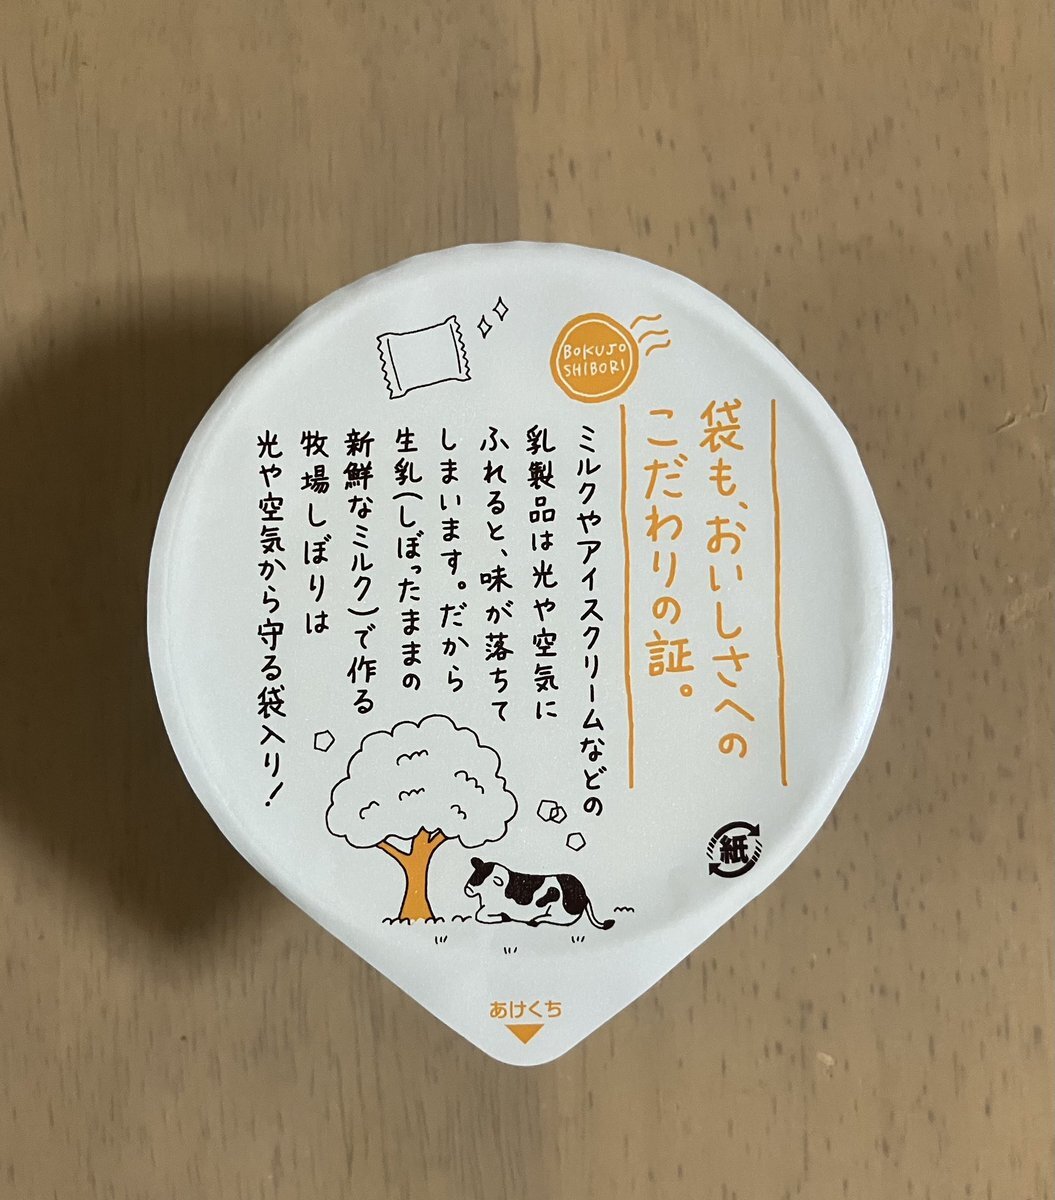 BOKUJO
SHIBORI
袋も、おいしさへの
こだわりの証。
ミルクやアイスクリームなどの
乳製品は光や空気に
ふれると、味が落ちて
しまいます。だから
生乳(しぼったままの
新鮮なミルク)で作る
牧場しぼりは
光や空気から守る袋入り!
紙
あけくち